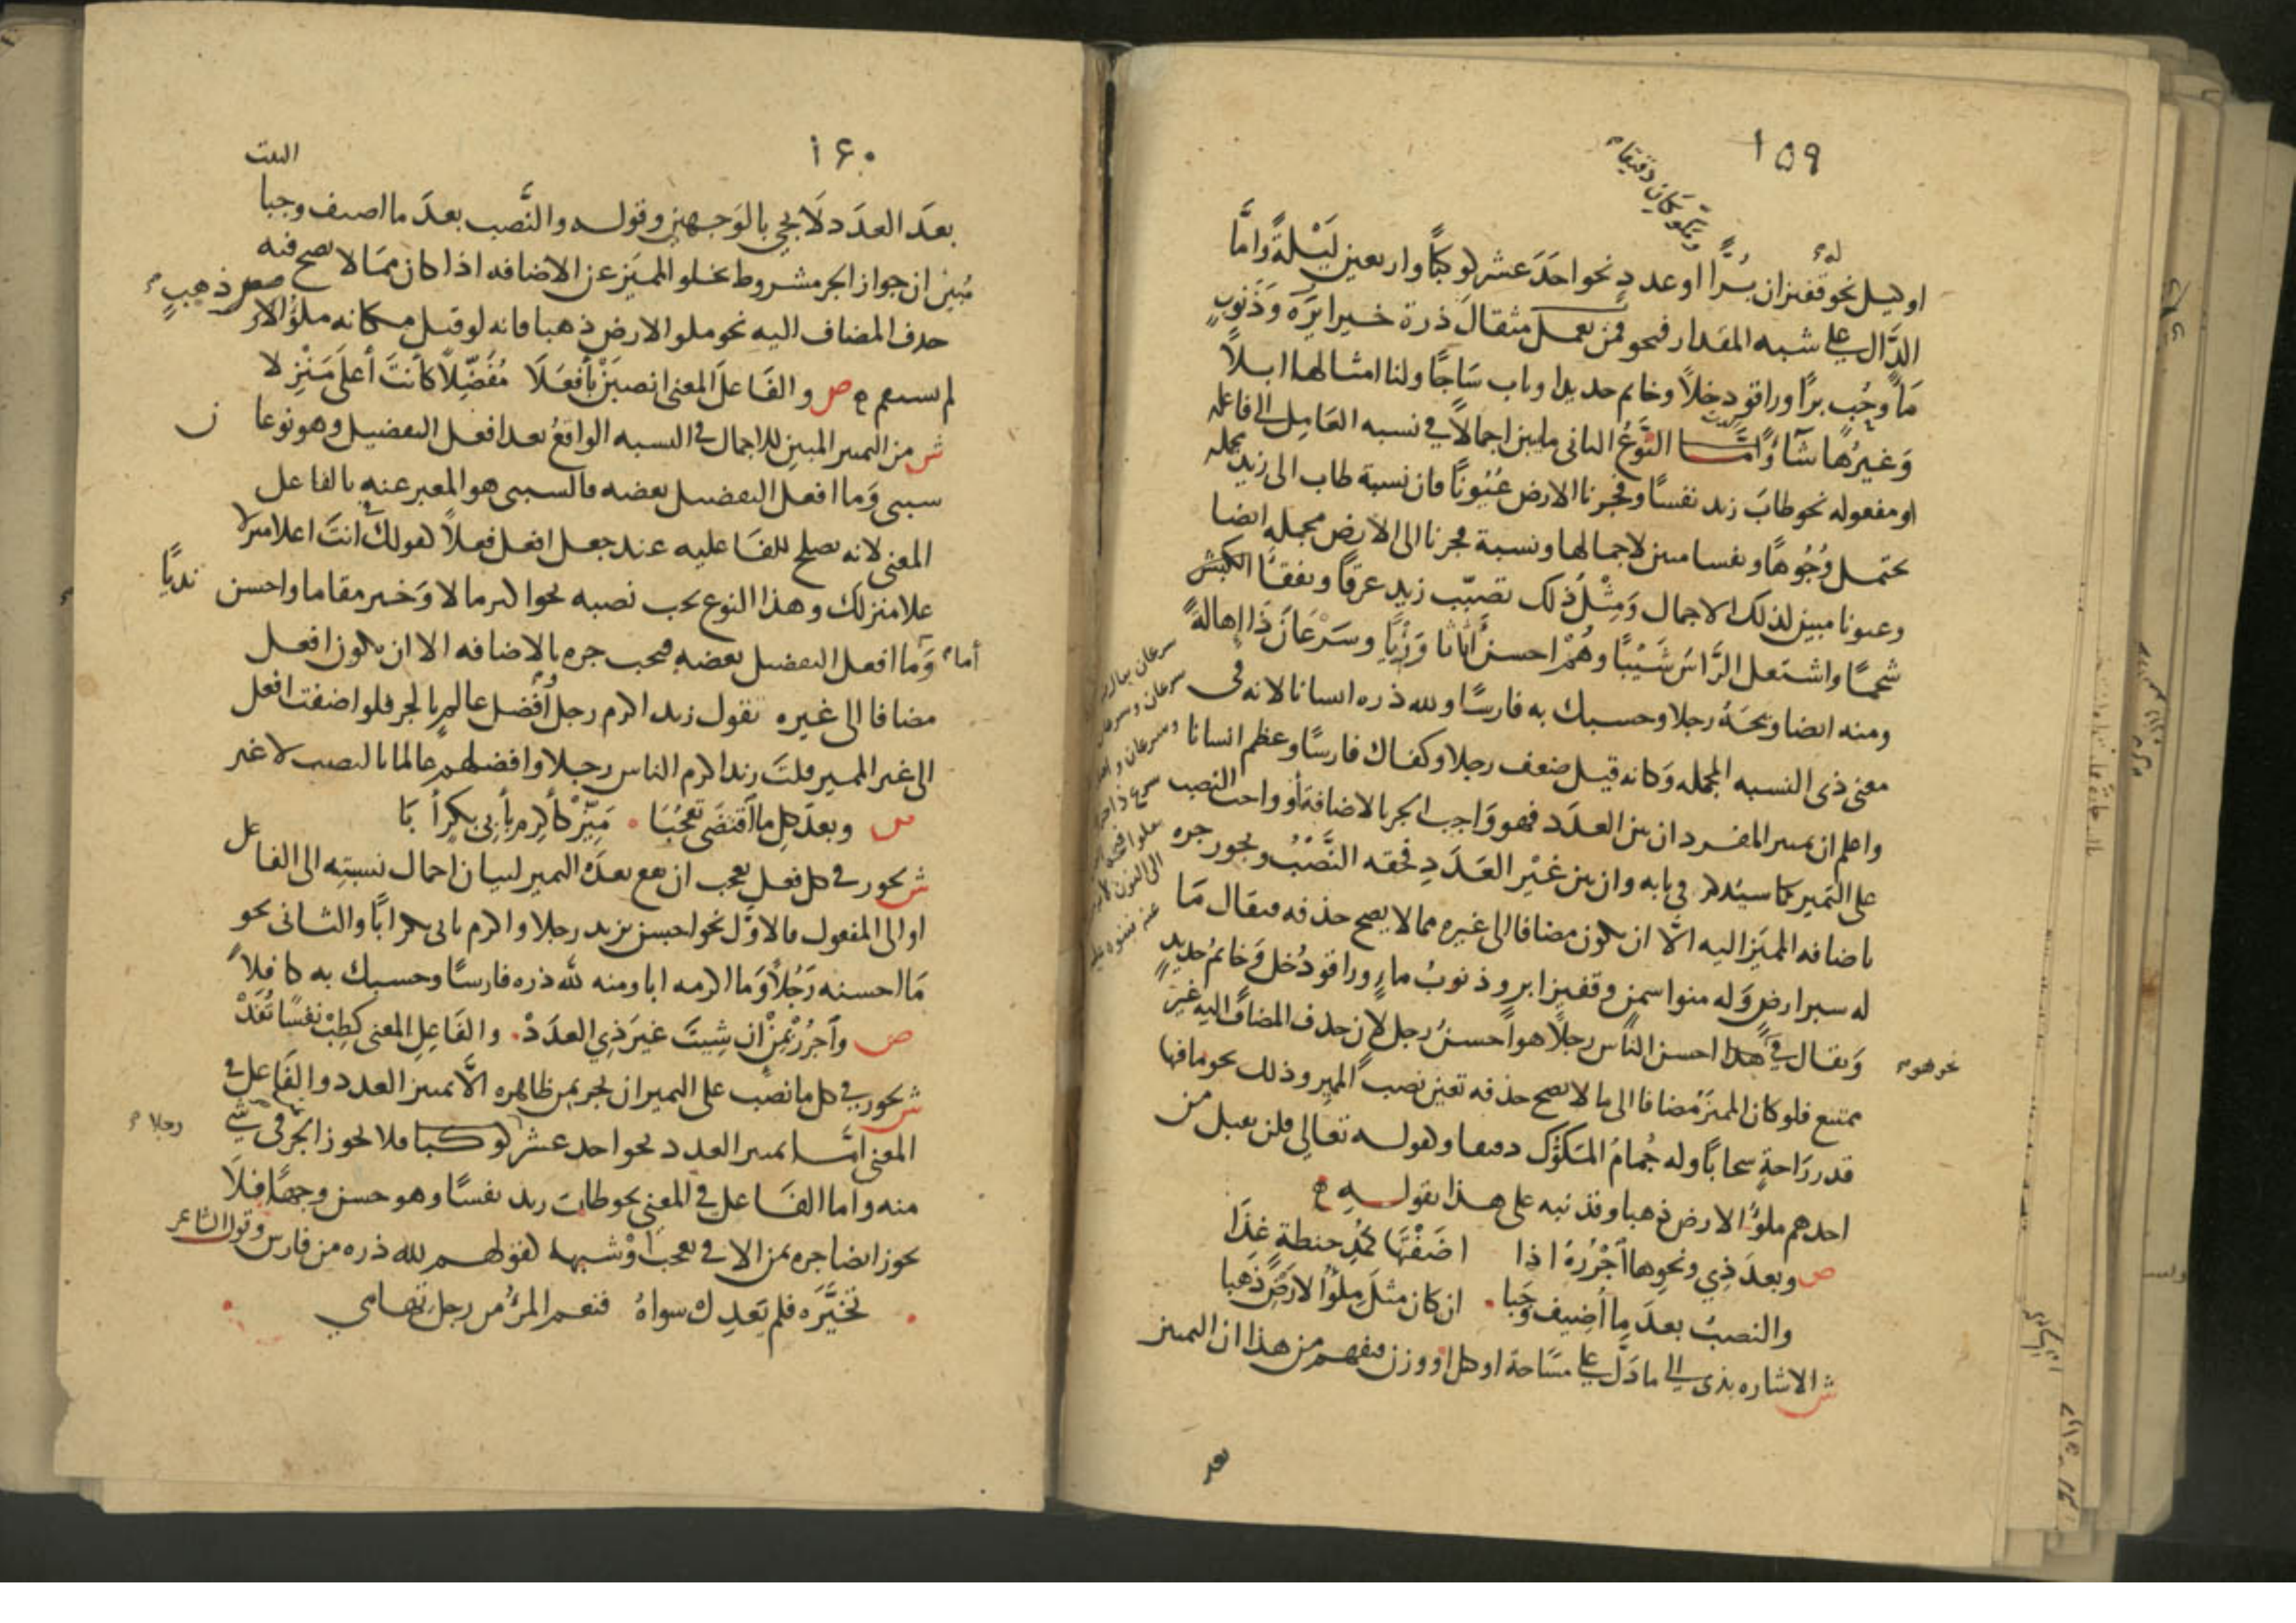 ١٥٩
ومكوكان دقيقا
له
او كيل نحو قفيزان بُرًّا او عددٍ نحو احَدَ عشر كوكبًا واربعين لَيْلةً وامَّا
الدَّال على شبه المقدار فنحو فمن يعمل مثقالَ ذرة خيرا يَرَه وَذَنوبٍ
مَاً وحُب برًا وراقود خلاً وخاتم حديدا وباب سَاجًا ولنا امثالها ابلاً
وَغيرُها شَآءً وامَّا النَّوعُ الثانى ما يبين اجمالاً في نسبه العَامِل الى فاعله
او مفعوله نحو طابَ زيد نفسًا وفجرنا الارض عُيُونًا فان نسبة طاب الى زيد مجمله
تحتمل وُجُوهًا ونفسا مبين لاجمالها ونسبة فجرنا الى الارض مجمله ايضا
وعيونا مبين لذلك الاجمال وَمِثْلُ ذلك تصبّب زيد عرقًا وتفقّأ الكبش
شحمًا واشتعل الرَّاسُ شَيْبًا وهُمْ احسنُ أثاثا وَرِئيًا وسَرْعَانَ ذَا إِهالةً
ومنه ايضا ويحَهُ رجلا وحسبك به فارسًا ولله دره انسانا لانه فى
معنى ذى النسبه المجمله وَكانه قيل ضعف رجلا وكفاك فارسًا وعظم انسانا
واعلم ان مميز المفرد ان بين العدَد فهو وَاجب الجر بالاضافة أو واجب النصب
على التميز كما سيُذكر فى بابه وان بين غيْر العَدَدِ فحقه النَّصْبُ ويجوز جره
باضافه المميَز اليه الَّا ان يكون مضافا الى غيره مما لا يصح حذفه فيقال مَا
له شبر ارضٍ وَله منوا سمنٍ وقفيزا برٍ وذنوبُ ماءٍ وراقودُ خل وَخاتمُ حديدٍ
وَيقال فى هذا احسن الناس رجلًا هو احسنُ رجل لان حذف المضاف اليه غير
نحو هو
ممتنع فلو كان المميَّزُ مُضافا الى ما لا يصح حذفه تعين نصب المميز وذلك نحو ما فيها
قدر رَاحةٍ سحابًا وله جُمامُ المَكوُّك دقيقا وكقوله تعالى فلن يقبل من
احدهم ملؤُ الارض ذهبا وقد نبه على هذا بقوله
ص وبعدَ ذِي ونحوِها اجْرُرهُ اذا اضَفْتَها كمُدِ حنطةٍ غذَا
والنصبُ بعدَ مِا أُضِيف وَجَبا ان كان مثلَ مِلؤُ الارَضِ ذَهبا
ش الاشاره بذى الى ما دَلَّ على مسَاحة او كل او وزن فيفهم من هذا ان التمييز
بعد
١٦٠
البيت
بعدَ العدَد لَا يجي بالوَجهين وقوله والنَّصب بعدَ ما اضيف وجبا
مُبينٌ ان جواز الجر مشروط بخلو المميَز عن الاضافه اذا كان ممَا لا يصح فيه
حذف المضاف اليه نحو ملو الارض ذهبا فانه لو قيل مكانه ملؤُ الارض ذهبٍ
لم يستقم ص والفَاعلَ المعنى انصبَنْ بأَفعَلَا مُفَضِّلاً كأَنتَ أَعلَى مَنْزِلا
ش من التمييز المبين للاجمال فى النسبه الواقعُ بعد افعل التفضيل وهو نوعان
سببى وَما افعل التفضيل بعضه فالسببى هو المعبر عنه بالفاعل
المعنى لانه يصلح للفَاعليه عند جعل افعل فعلاً كقولك انتَ اعلا منزلا
علا منزلك وهذا النوع يجب نصبه نحو اكثر مالا وَخير مقاما واحسن نديًّا
أما وَما افعل التفضيل بعضه فيجب جره بالاضافه الا ان يكون افعل
مضافا الى غيره تقول زيد اكرم رجل وأفضل عالمٍ بالجر فلو اضفت افعل
الى غير المميز قلتَ زيد اكرم الناس رجلا وافضلهم عالما بالنصب لا غير
ص وبعدَ كلِ ما اقتضَى تعجُّبَا مَيِّزْ كأَكرِم بأَبِي بكرٍ أبَا
ش يجوز فى كل فعل تعجب ان يقع بعدَه التميز لبيان اجمال نسبتِه الى الفاعل
او الى المفعول فالاوَّل نحو احسن بزيد رجلا واكرم بابى بكر ابًا والثانى نحو
مَا احسنه رَجُلاً وَما اكرمه ابا ومنه لله دره فارسًا وحسبك به كافِلاً
ص وأجرُرْ بِمِنْ ان شِيتَ غيرَ ذِي العدَدْ والفَاعِلِ المعنى كَطِبْ نفسًا تُفَدْ
ش يجوز فى كل ما نصَب على التميز ان يجر بمن ظاهره الَّا تمييز العدد والفَاعل فى
المعنى امَّا تمييز العدد نحو احد عشر كوكبا فلا يجوز الجر فى شي رجلا
منه واما الفَاعل فى المعنى نحو طاب زيد نفسًا وهو حسن وجهًا فلَا
يجوز ايضا جره بمن الا فى تعجب اوْ شبهه كقولهم لله دره من فارس وقول الشاعر
تخيَّرَه فلم يَعدِل سواهُ فنعم المرؤُ من رجل تهامي